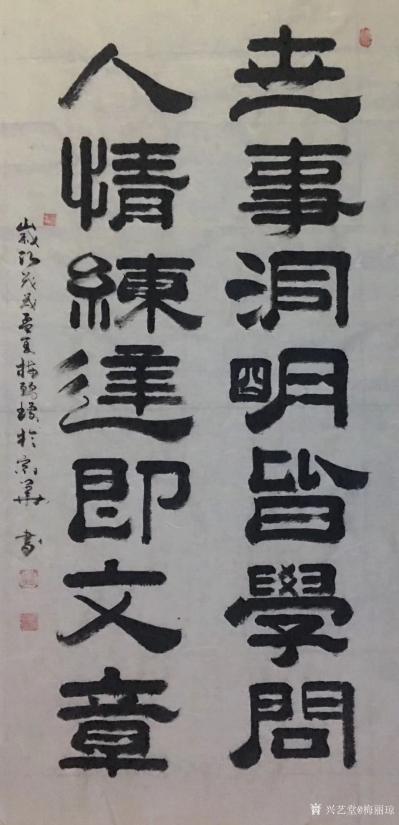 世事洞明皆學問
人情練達即文章
歲次戊戌孟夏梅麗瓊於京華書
兴艺堂@梅丽琼